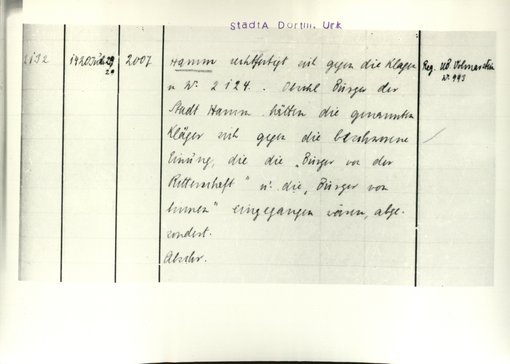 StadtA Dortm. Urk
2132 1420 2007 Hamm rechtfertigt sich gegen die Kläger Reg. UB Volmarstein
in Nr. 2124. Bürger der Nr. 993
Stadt Hamm hätten die genannten
Kläger sich gegen die beschworene
Einung, die die „Bürger von der
Ritterschaft" u. die „Bürger von
binnen" eingegangen wären, abge-
sondert.
Abschr.